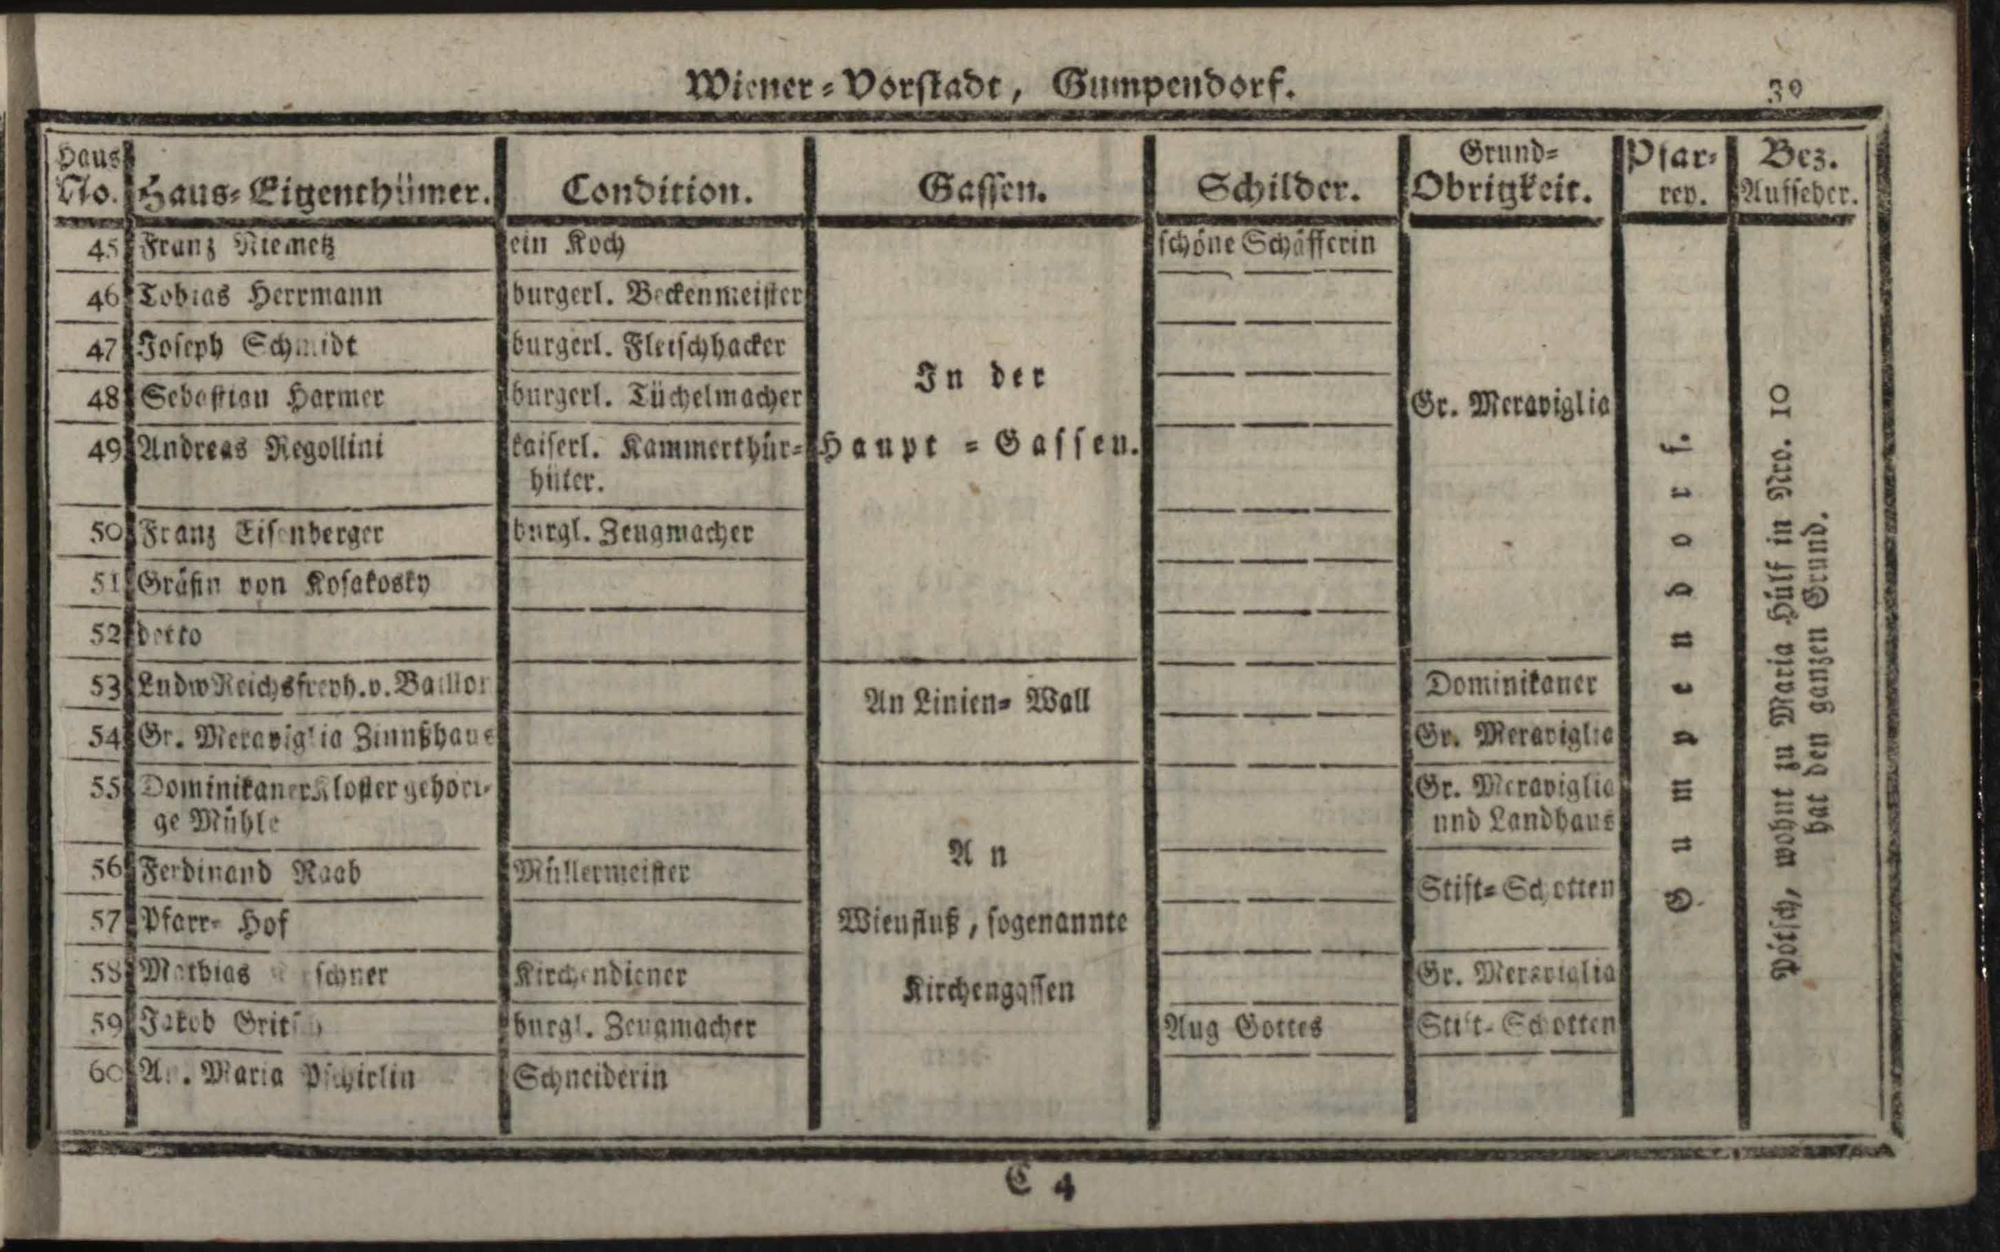 Wiener-Vorstadt, Gumpendorf.
Haus No. Haus-Eigenthümer. Condition. Gassen. Schilder. Grund-Obrigkeit. Pfar-rey. Bez. Aufseher.
45 Franz Niemetz ein Koch schöne Schäfferin
46 Tobias Herrmann burgerl. Beckenmeister
47 Joseph Schmidt burgerl. Fleischhacker
In der
48 Sebastian Harmer burgerl. Tüchelmacher Gr. Meraviglia
49 Andreas Regollini kaiserl. Kammerthür- Haupt-Gassen.
hüter.
50 Franz Eisenberger burgl. Zeugmacher
51 Gräfin von Kosakosky
52 detto
53 Ludw Reichsfreyh. v. Baillor An Linien-Wall Dominikaner
54 Gr. Meraviglia Zinnßhaus Gr. Meraviglia
55 Dominikaner Kloster gehöri- Gr. Meraviglia
ge Mühle und Landhaus
An
56 Ferdinand Raab Müllermeister Stift-Schotten
57 Pfarr-Hof Wienfluß, sogenannte
58 Mathias Kirchendiener Kirchengassen Gr. Meraviglia
59 Jakob burgl. Zeugmacher Aug Gottes Stift-Schotten
60 Maria Schneiderin
Gumpendorf.
Pötsch, wohnt zu Maria Hülf in Nro. 10
hat den ganzen Grund.
C 4